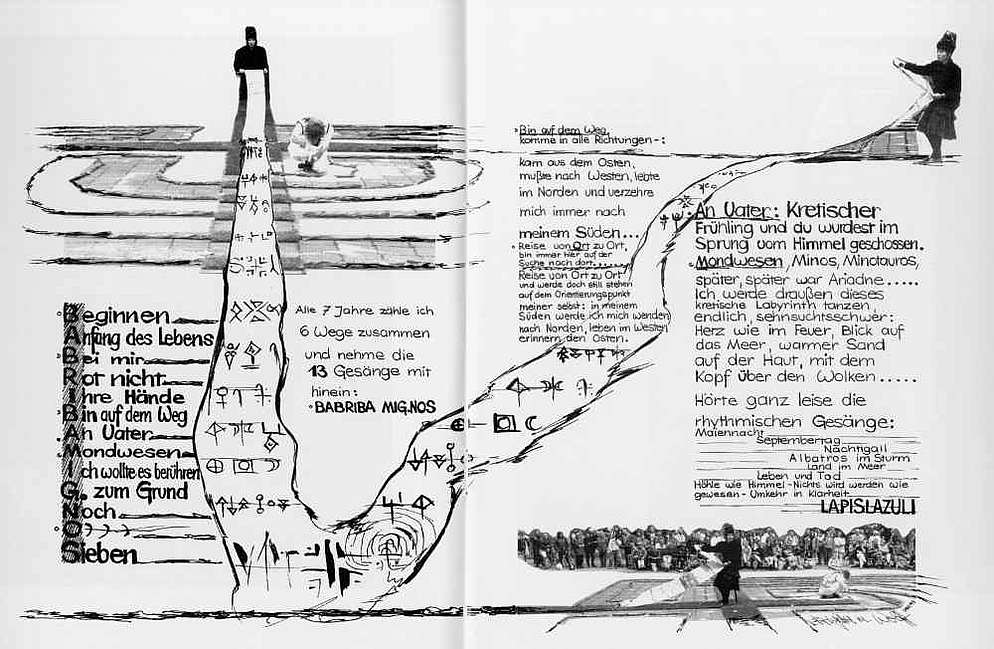 Beginnen
Anfang des Lebens
Bei mir
Rot nicht
Ihre Hände
Bin auf dem Weg
An Vater
Mondwesen
Ich wollte es berühren
G. zum Grund
Noch
Sieben
Alle 7 Jahre zähle ich
6 Wege zusammen
und nehme die
13 Gesänge mit
hinein:
BABRIBA MIG.NOS
Bin auf dem Weg,
komme in alle Richtungen-:
kam aus dem Osten,
mußte nach Westen, lebte
im Norden und verzehre
mich immer nach
meinem Süden...
Reise von Ort zu Ort,
bin immer hier auf der
Suche nach dort......
Reise von Ort zu Ort
und werde doch still stehen
auf dem Orientierungspunkt
meiner selbst: in meinem
Süden werde ich mich wenden
nach Norden, leben im Westen
erinnern den Osten.
An Vater: Kretischer
Frühling und du wurdest im
Sprung vom Himmel geschossen.
Mondwesen, Minos, Minotauros,
später, später war Ariadne.....
Ich werde draußen dieses
kretische Labyrinth tanzen,
endlich, sehnsuchtsschwer:
Herz wie im Feuer, Blick auf
das Meer, warmer Sand
auf der Haut, mit dem
Kopf über den Wolken.....
Hörte ganz leise die
rhythmischen Gesänge:
Maiennacht
Septembertag
Nachtigall
Albatros im Sturm
Land im Meer
Leben und Tod
Höhle wie Himmel-Nichts wird werden wie
gewesen-Umkehr in Klarheit
LAPISLAZULI